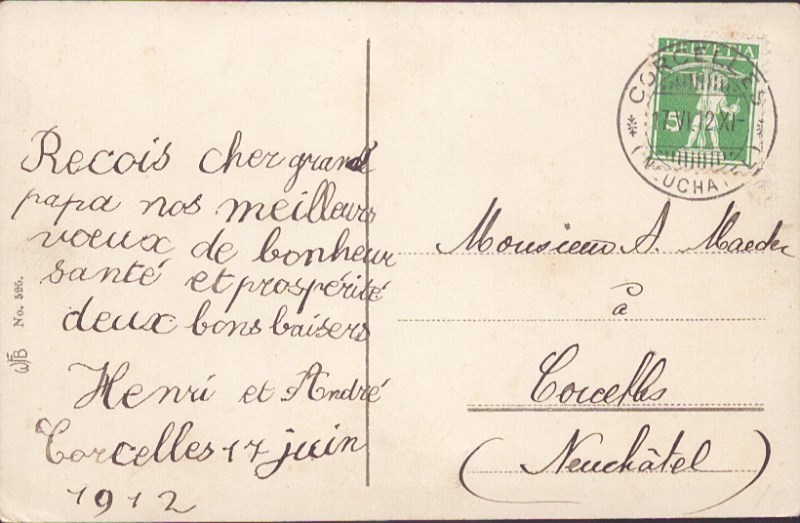 Recois cher grand
papa nos meilleurs
vœux de bonheur
santé et prospérité
deux bons baisers
Henri et André
Corcelles 17 juin
1912
WFB No. 526.
HELVETIA
5
CORCELLES
17.VI.12.XI-
(NEUCHATEL)
Monsieur A. Maeder
à
Corcelles
(Neuchâtel)